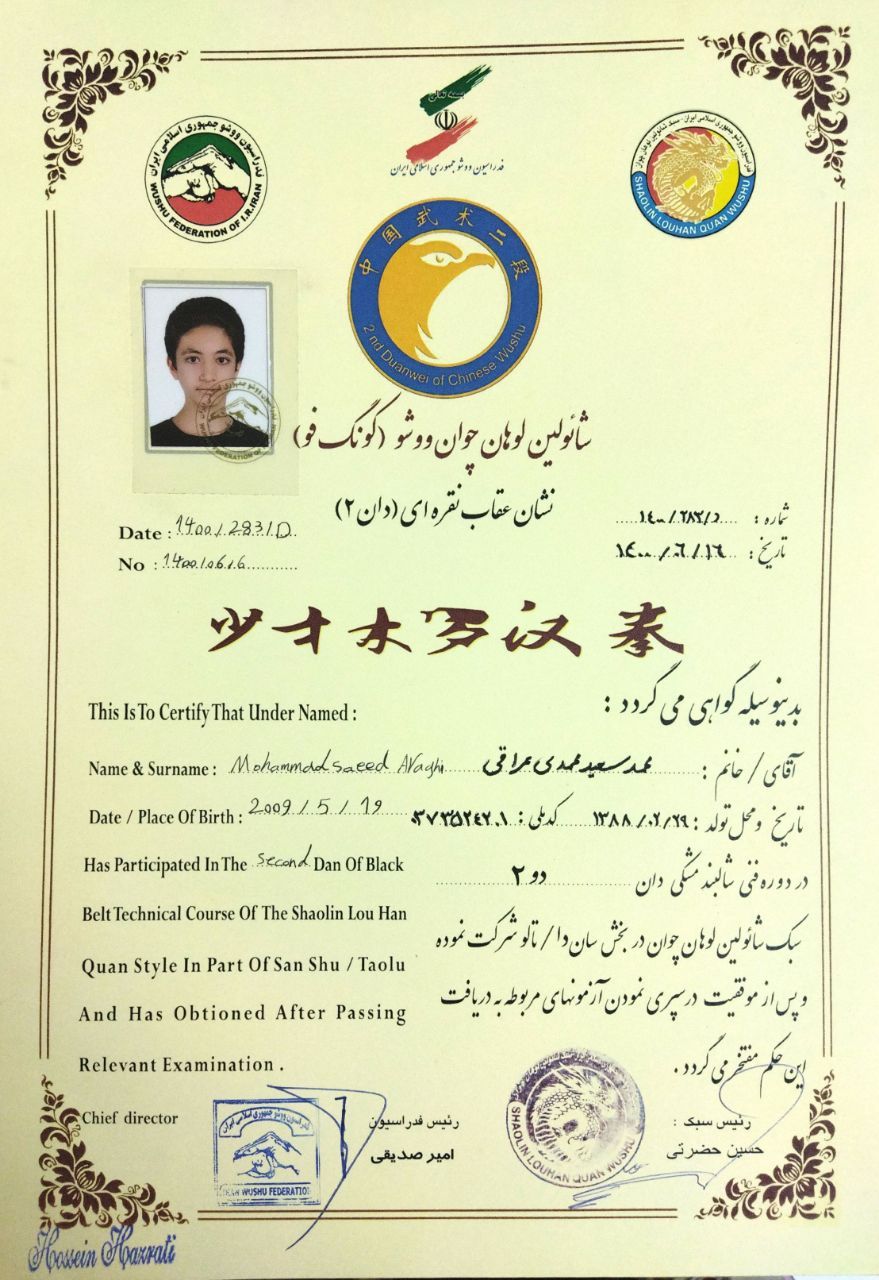 بسمه تعالی
فدراسیون ووشو جمهوری اسلامی ایران
فدراسیون ووشو جمهوری اسلامی ایران
WUSHU FEDERATION OF I.R.IRAN
SHAOLIN LOUHAN QUAN WUSHU
中国武术二段
2 nd Duanwei of Chinese Wushu
شائولین لوهان چوان ووشو (کونگ فو)
نشان عقاب نقره ای (دان ۲)
شماره : ۱۴۰۰/۲۸۳/D
تاریخ : ۱۴۰۰/۶/۱۶
Date : 1400/283/D
No : 1400/06/6
少才木罗汉拳
This Is To Certify That Under Named :
بدینوسیله گواهی می گردد :
Name & Surname : Mohammadsaeed Araghi
آقای / خانم : محمد سعید محمدی عراقی
Date / Place Of Birth : 2009 / 5 / 19
تاریخ و محل تولد : ۱۳۸۸/۰۲/۲۹ کد ملی :
Has Participated In The second Dan Of Black
در دوره فنی شالبند مشکی دان دو ۲
Belt Technical Course Of The Shaolin Lou Han
سبک شائولین لوهان چوان در بخش سان دا / تالو شرکت نموده
Quan Style In Part Of San Shu / Taolu
و پس از موفقیت در سپری نمودن آزمونهای مربوطه به دریافت
And Has Obtioned After Passing
این حکم مفتخر می گردد .
Relevant Examination .
Chief director
رئیس فدراسیون
امیر صدیقی
رئیس سبک :
حسین حضرتی
فدراسیون ووشو جمهوری اسلامی ایران
IRAN WUSHU FEDERATION
SHAOLIN LOUHAN QUAN WUSHU
Hossein Hazrati